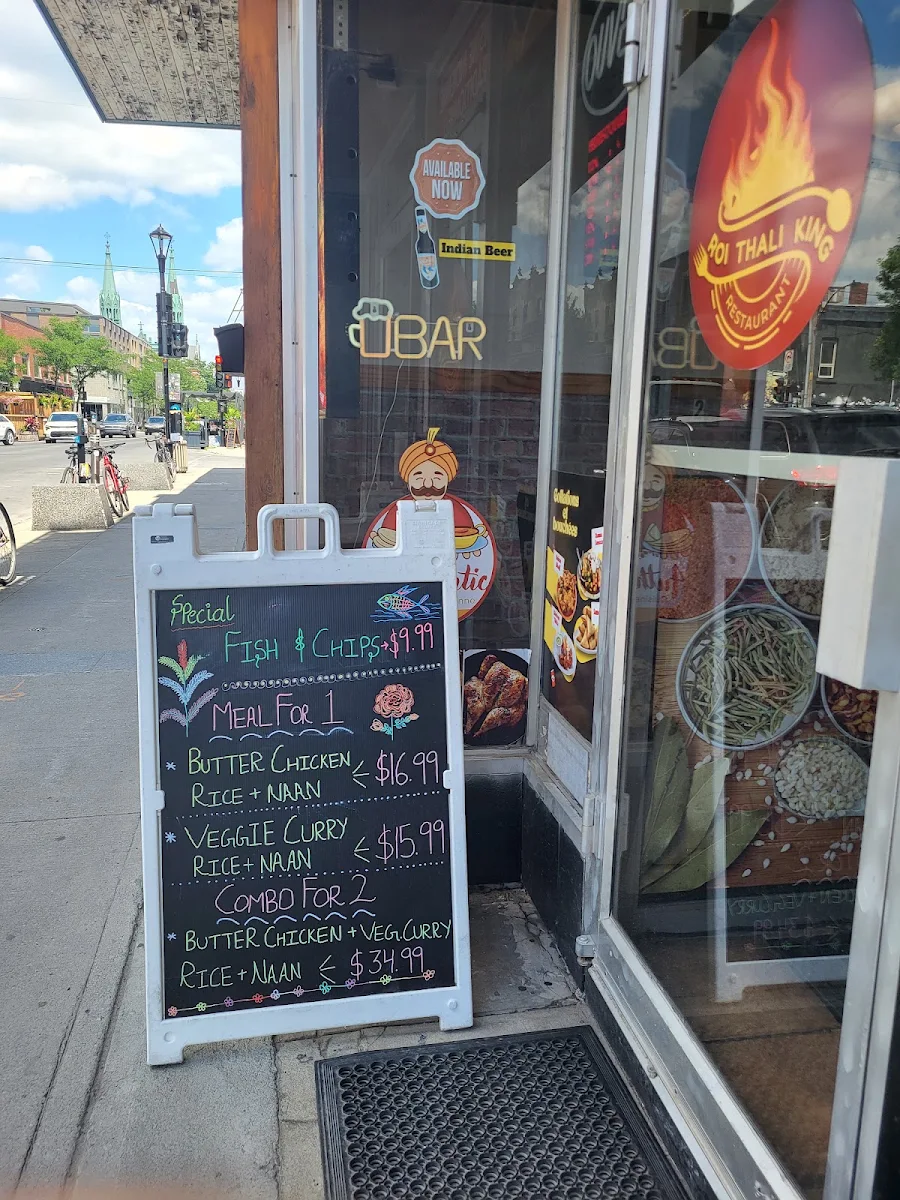 AVAILABLE
NOW
Indian Beer
BAR
ROI THALI KING
RESTAURANT
Special
FISH & CHIPS → $9.99
MEAL FOR 1
* BUTTER CHICKEN
RICE + NAAN < $16.99
* VEGGIE CURRY
RICE + NAAN < $15.99
COMBO FOR 2
* BUTTER CHICKEN + VEG. CURRY
RICE + NAAN < $34.99